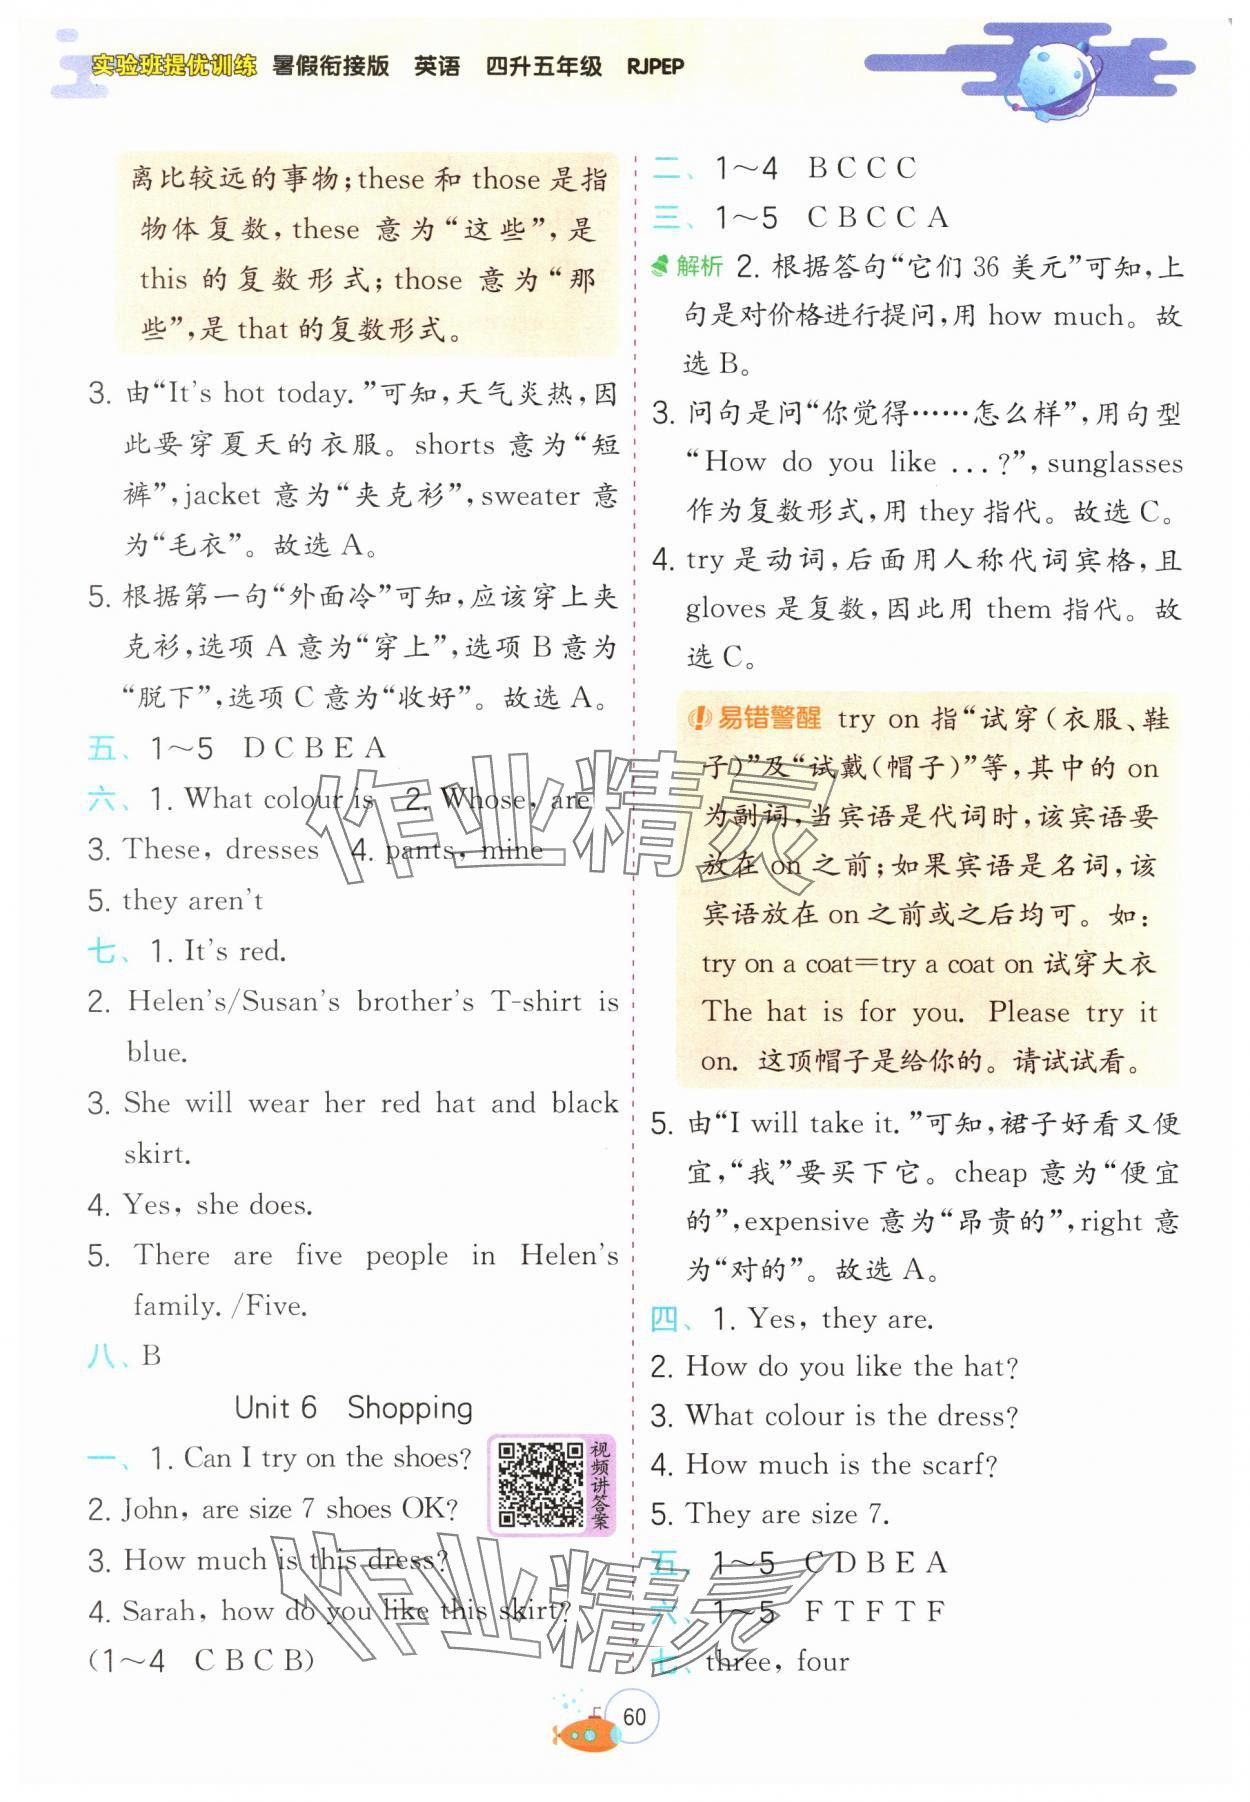 实验班提优训练 暑假衔接版 英语 四升五年级 RJPEP
离比较远的事物;these 和 those 是指
物体复数,these 意为“这些”,是
this 的复数形式;those 意为“那
些”,是 that 的复数形式。
3. 由“It's hot today.”可知,天气炎热,因
此要穿夏天的衣服。shorts 意为“短
裤”,jacket 意为“夹克衫”,sweater 意
为“毛衣”。故选 A。
5. 根据第一句“外面冷”可知,应该穿上夹
克衫,选项 A 意为“穿上”,选项 B 意为
“脱下”,选项 C 意为“收好”。故选 A。
五、1～5 D C B E A
六、1. What colour is 2. Whose, are
3. These, dresses 4. pants, mine
5. they aren't
七、1. It's red.
2. Helen's/Susan's brother's T-shirt is
blue.
3. She will wear her red hat and black
skirt.
4. Yes, she does.
5. There are five people in Helen's
family. /Five.
八、B
Unit 6 Shopping
一、1. Can I try on the shoes?
2. John, are size 7 shoes OK?
3. How much is this dress?
4. Sarah, how do you like this skirt?
(1～4 C B C B)
视频讲答案
二、1～4 B C C C
三、1～5 C B C C A
解析 2. 根据答句“它们 36 美元”可知,上
句是对价格进行提问,用 how much。故
选 B。
3. 问句是问“你觉得……怎么样”,用句型
“How do you like ...?”,sunglasses
作为复数形式,用 they 指代。故选 C。
4. try 是动词,后面用人称代词宾格,且
gloves 是复数,因此用 them 指代。故
选 C。
易错警醒 try on 指“试穿(衣服、鞋
子)”及“试戴(帽子)”等,其中的 on
为副词,当宾语是代词时,该宾语要
放在 on 之前;如果宾语是名词,该
宾语放在 on 之前或之后均可。如:
try on a coat=try a coat on 试穿大衣
The hat is for you. Please try it
on. 这顶帽子是给你的。请试试看。
5. 由“I will take it.”可知,裙子好看又便
宜,“我”要买下它。cheap 意为“便宜
的”,expensive 意为“昂贵的”,right 意
为“对的”。故选 A。
四、1. Yes, they are.
2. How do you like the hat?
3. What colour is the dress?
4. How much is the scarf?
5. They are size 7.
五、1～5 C D B E A
六、1～5 F T F T F
七、three, four
作业精灵
作业精灵
60